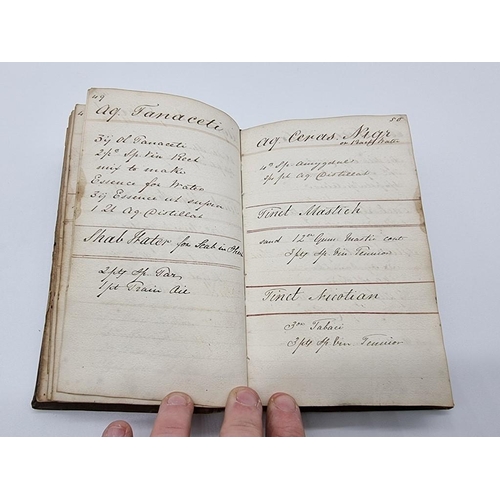 49
Aq. Tanaceti
3ij Ol Tanaceti
2po Sp. Vin Rect
mix to make
Essence for Water
3ij Essence ut supra
1 2t Aq Distillat
Shab Water for Scab in
2pts Sp. Tar
1pt Train Oil
50
Aq Ceras. Nigr
or Water
Sp. Amygdal
Aq Distillat
Tinct Mastich
sand 12oz Gum Mastic cont
3pts Sp. Vin Tennior
Tinct Nicotian
Tabaci
3pts Sp. Vin Tennior